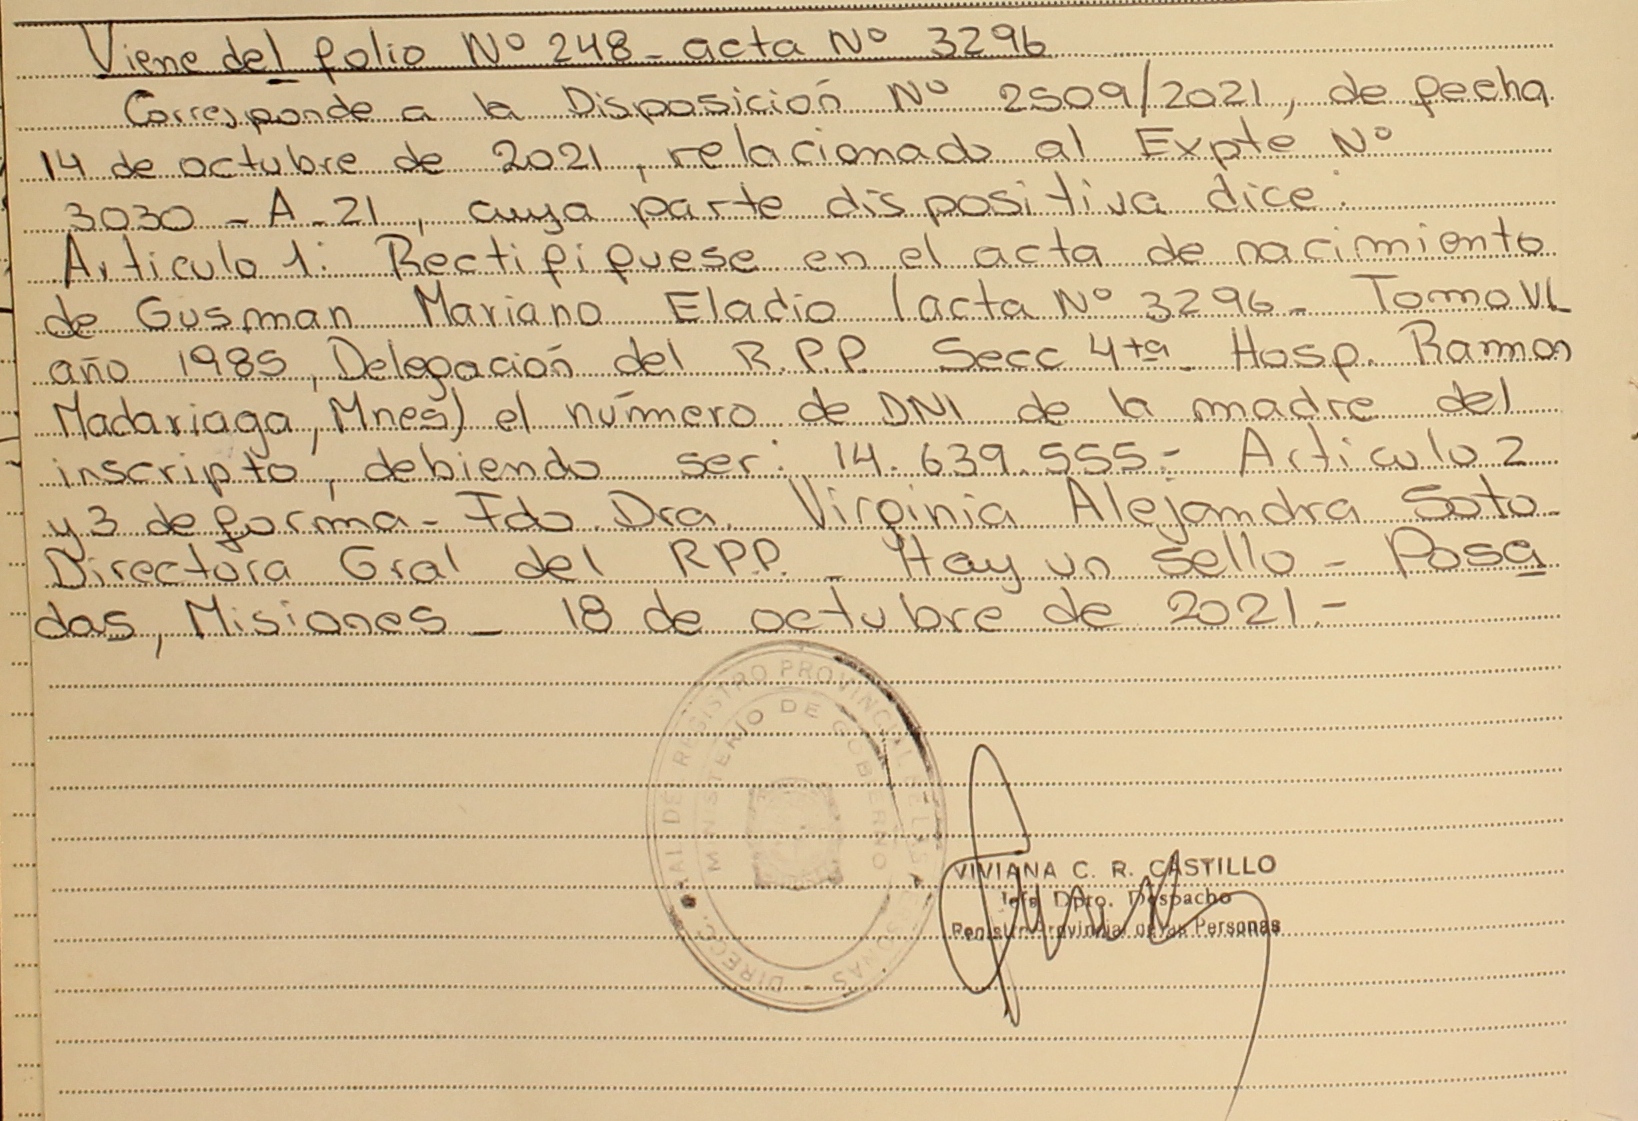 Viene del folio Nº 248 - acta Nº 3296
Corresponde a la Disposición Nº 2509/2021, de fecha
14 de octubre de 2021, relacionado al Expte Nº
3030 - A - 21, cuya parte dispositiva dice:
Articulo 1: Rectifiquese en el acta de nacimiento
de Gusman Mariano Eladio (acta Nº 3296 - Tomo VI
año 1985, Delegación del R.P.P. Secc 4ta - Hosp. Ramon
Madariaga, Mnes) el número de DNI de la madre del
inscripto, debiendo ser: 14.639.555.- Articulo 2
y 3 de forma - Fdo. Dra. Virginia Alejandra Soto -
Directora Gral del R.P.P. - Hay un sello - Posa
das, Misiones - 18 de octubre de 2021.-
DIRECC. GRAL DEL REGISTRO PROVINCIAL DE LAS PERSONAS -
MINISTERIO DE GOBIERNO
VIVIANA C. R. CASTILLO
Jefa Dpto. Despacho
Registro Provincial de las Personas